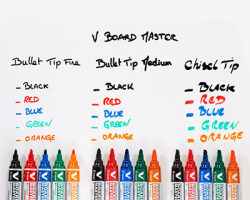 V BOARD MASTER
Bullet Tip Fine
- BLACK
- RED
- BLUE
- GREEN
- ORANGE
Bullet Tip Medium
- BLACK
- RED
- BLUE
- GREEN
- ORANGE
Chisel Tip
- BLACK
- RED
- BLUE
- GREEN
- ORANGE